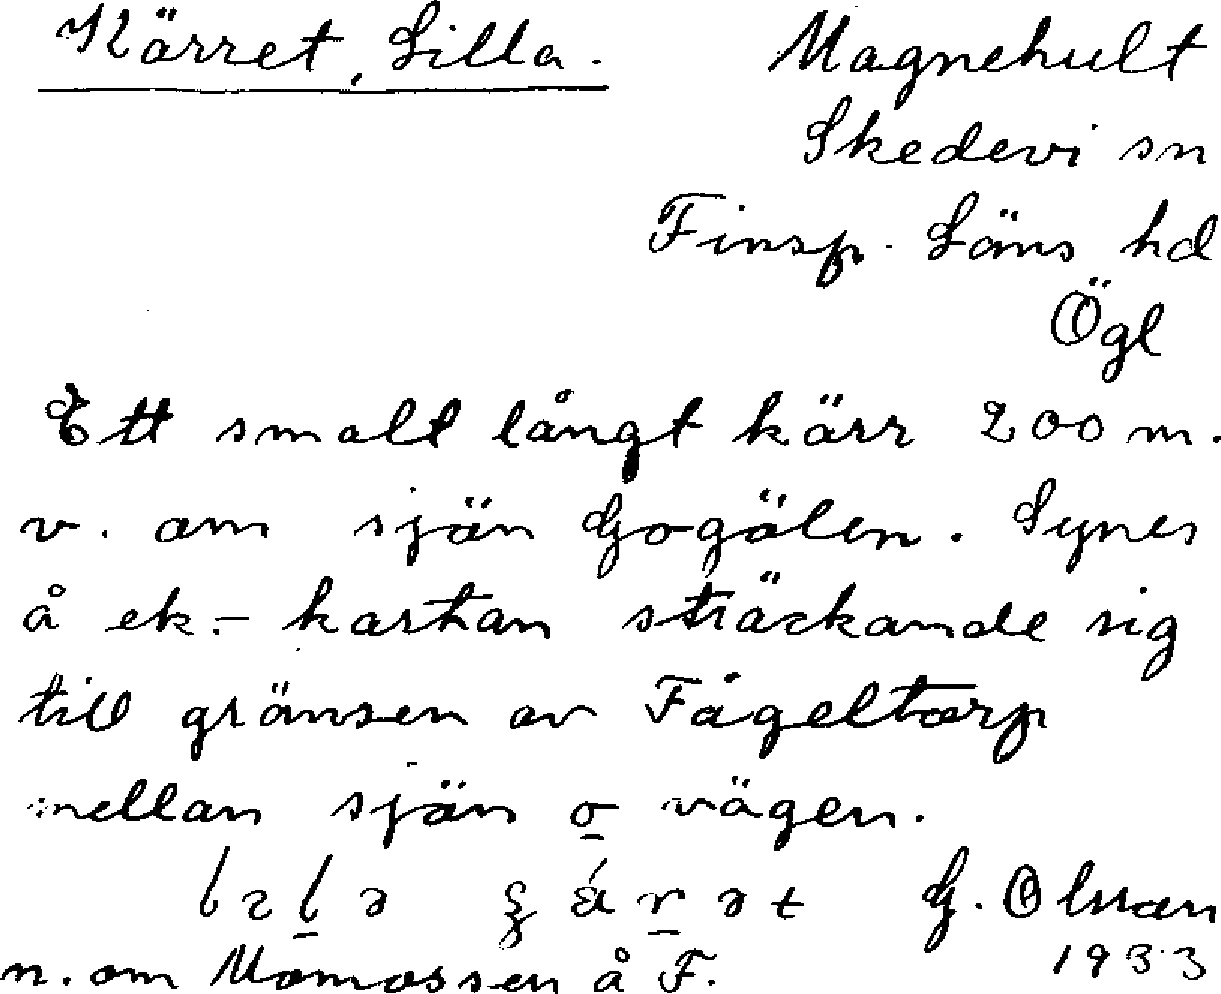 Kärret, Lilla.
Magnehult
Skedevi sn
Finsp. Läns hd
Ögl
Ett smalt långt kärr 200 m.
v. om sjön Gogölen. Synes
å ek.- kartan sträckande sig
till gränsen av Fågeltorp
mellan sjön o vägen.
G. Olsson
1933
n. om Momossen å F.